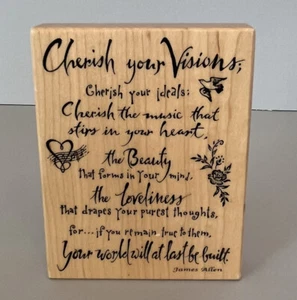 Cherish your Visions;
Cherish your ideals;
Cherish the music that
stirs in your heart,
the Beauty
that forms in your mind,
the loveliness
that drapes your purest thoughts,
for...if you remain true to them,
Your world will at last be built.
James Allen